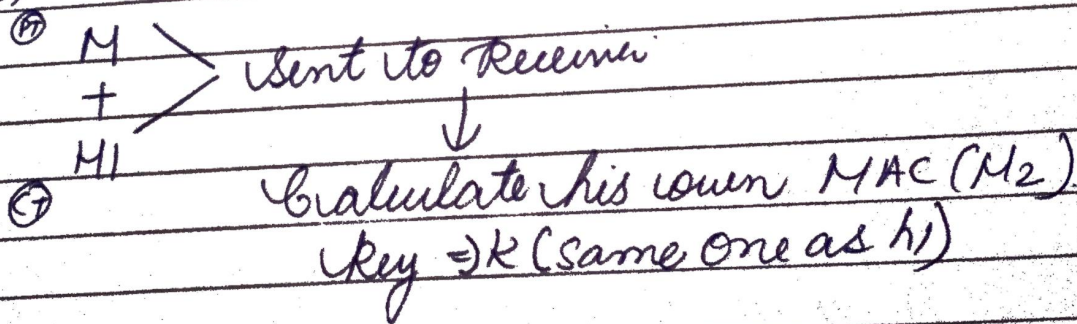 PT M
+ Sent to Receiver
H1
CT Calculate his own MAC (M2).
Key => K (same one as h1)